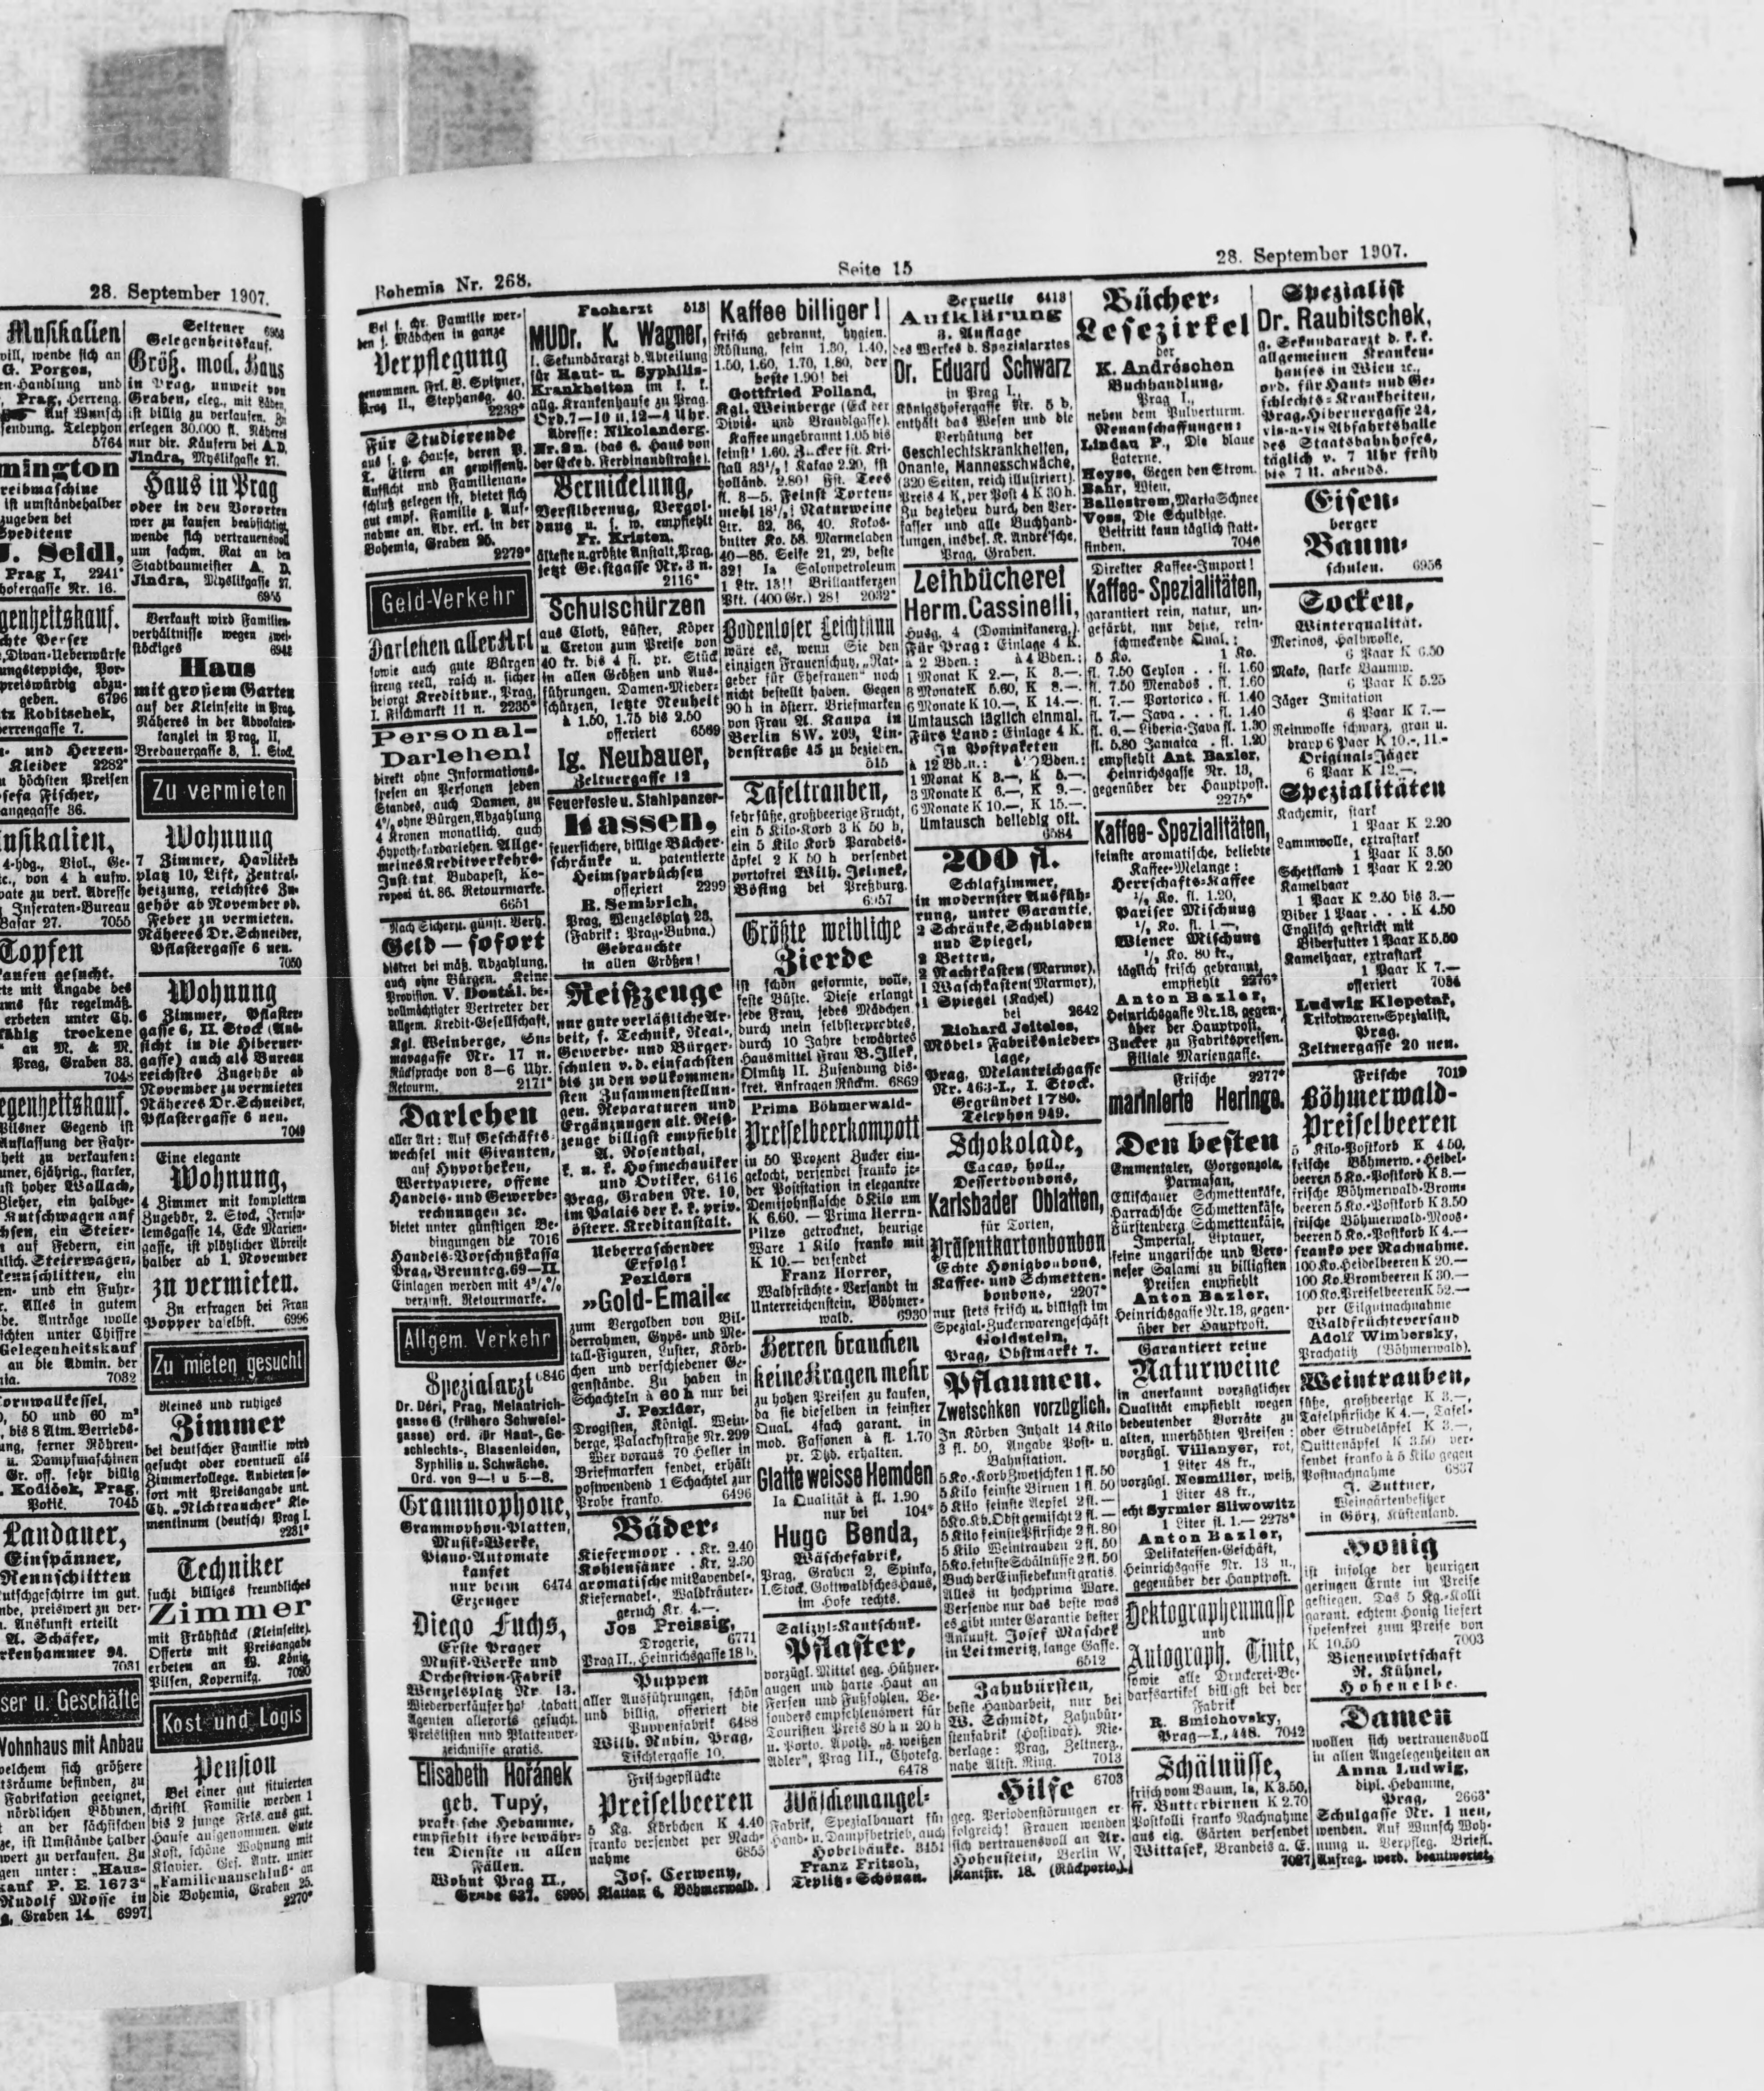 28. September 1907.
Musikalien
will, wende sich an
G. Porges,
en-Handlung und
Prag, Herreng.
Auf Wunsch
sendung. Telephon
5764
mington
reibmaschine
ist umständehalber
zugeben bei
Spediteur
J. Seidl,
Prag I, 2241*
hofergasse Nr. 16.
genheitskauf.
chte Perser
, Divan-Ueberwürfe
ungsteppiche, Por-
preiswürdig abzu-
geben. 6796
tz Robitschek,
errengasse 7.
- und Herren-
Kleider 2282*
n höchsten Preisen
sefa Fischer,
angegasse 36.
usikalien,
4-hdg., Viol., Ge-
c., von 4 h aufw.
pate zu verk. Adresse
Inseraten-Bureau
Basar 27. 7055
Topfen
aufen gesucht.
rte mit Angabe des
ums für regelmäß.
erbeten unter Ch.
fähig trockene
an M. & M.
Prag, Graben 33.
7048
egenheitskauf.
Pilsner Gegend ist
Auflassung der Fahr-
heit zu verkaufen:
uner, 6jährig., starker,
ust hoher Wallach,
Zieher, ein halbge-
Kutschwagen auf
hsen, ein Steier-
n auf Federn, ein
mlich. Steierwagen,
Rennschlitten, ein
en- und ein Fuhr-
r. Alles in gutem
de. Anträge wolle
ichten unter Chiffre
Gelegenheitskauf
an die Admin. der
nia. 7032
ornwallkessel,
, 50 und 60 m²
, bis 8 Atm. Betriebs-
ung, ferner Röhren-
u. Dampfmaschinen
Gr. off. sehr billig
. Kodiček, Prag,
Potič. 7045
Landauer,
Einspänner,
Rennschlitten
utschgeschirre im gut.
nde, preiswert zu ver-
. Auskunft erteilt
A. Schäfer,
rkenhammer 94.
7031
ser u. Geschäfte
Wohnhaus mit Anbau
welchem sich größere
tsräume befinden, zu
Fabrikation geeignet,
nördlichen Böhmen,
t an der sächsischen
ze, ist Umstände halber
wert zu verkaufen. Zu
gen unter: „Haus-
kauf P. E. 1673"
Rudolf Mosse in
g, Graben 14. 6997
Seltener
Gelegenheitskauf.
Größ. mod. Haus
in Prag, unweit von
Graben, eleg., mit Läden,
ist billig zu verkaufen. Zu
erlegen 30.000 fl. Näheres
nur dir. Käufern bei A. D.
Jindra, Myslikgasse 27.
Haus in Prag
oder in den Vororten
wer zu kaufen beabsichtigt
wende sich vertrauensvoll
um fachm. Rat an den
Stadtbaumeister A. D.
Jindra, Myslikgasse 27.
6955
Verkauft wird Familien-
verhältnisse wegen zwei-
stöckiges 6942
Haus
mit großem Garten
auf der Kleinseite in Prag.
Näheres in der Advokaten-
kanzlei in Prag, II,
Bredauergasse 8, 1. Stock.
Zu vermieten
Wohnung
7 Zimmer, Havličék-
platz 10, Lift, Zentral-
heizung, reichstes Zu-
gehör ab November od.
Feber zu vermieten.
Näheres Dr. Schneider,
Pflastergasse 6 neu.
7050
Wohnung
6 Zimmer, Pflaster-
gasse 6, II. Stock (Aus-
sicht in die Hiberner-
gasse) auch als Bureau
reichstes Zugehör ab
November zu vermieten
Näheres Dr. Schneider,
Pflastergasse 6 neu.
7049
Eine elegante
Wohnung,
4 Zimmer mit komplettem
Zugehör, 2. Stock, Jerusa-
lemsgasse 14, Ecke Marien-
gasse, ist plötzlicher Abreise
halber ab 1. November
zu vermieten.
Zu erfragen bei Frau
Popper daselbst. 6996
Zu mieten gesucht
Reines und ruhiges
Zimmer
bei deutscher Familie wird
gesucht oder eventuell als
Zimmerkollege. Anbieten so-
fort mit Preisangabe unt.
Ch. „Nichtraucher" Kle-
mentinum (deutsch) Prag I.
2281*
Techniker
sucht billiges freundliches
Zimmer
mit Frühstück (Kleinseite).
Offerte mit Preisangabe
erbeten an W. König,
Pilsen, Kopernikg. 7020
Kost und Logis
Pension
Bei einer gut situierten
christl Familie werden 1
bis 2 junge Frls. aus gut.
Hause aufgenommen. Gute
Kost, schöne Wohnung mit
Klavier. Gef. Antr. unter
„Familienanschluß" an
die Bohemia, Graben 25.
2270*
Bohemia Nr. 268.
Seite 15
28. September 1907.
Bei j. chr. Familie wer-
den j. Mädchen in ganze
Verpflegung
genommen. Frl. B. Spitzner,
Prag II., Stephansg. 40.
2238*
Für Studierende
aus j. g. Hause, deren P.
T. Eltern an gewissenh.
Aufsicht und Familienan-
schluß gelegen ist, bietet sich
gut empf. Familie z. Auf-
nahme an. Adr. erl. in der
Bohemia, Graben 25.
2279*
Geld-Verkehr
Darlehen aller Art
sowie auch gute Bürgen
streng reell, rasch u. sicher
besorgt Kreditbur., Prag,
I. Fischmarkt 11 n. 2235*
Personal-
Darlehen!
direkt ohne Informations-
spesen an Personen jeden
Standes, auch Damen, zu
4% ohne Bürgen, Abzahlung
4 Kronen monatlich, auch
Hypothekardarlehen. Allge-
meines Kreditverkehrs-
Institut Budapest, Ke-
repesi út. 86. Retourmarke.
6651
Nach Sicherst. günst. Verh.
Geld — sofort
diskret bei mäß. Abzahlung,
auch ohne Bürgen. Keine
Provision. V. Dostál, be-
vollmächtigter Vertreter der
Allgem. Kredit-Gesellschaft,
Kgl. Weinberge, Su-
mavagasse Nr. 17 n.
Rücksprache von 3—6 Uhr.
Retourm. 2171*
Darlehen
aller Art: Auf Geschäfts-
wechsel mit Giranten,
auf Hypotheken,
Wertpapiere, offene
Handels- und Gewerbe-
rechnungen ꝛc.
bietet unter günstigen Be-
dingungen die 7016
Handels-Vorschußkassa
Prag, Brenntog. 69—II.
Einlagen werden mit 4½%
verzinst. Retourmarke.
Allgem. Verkehr
Spezialarzt 6846
Dr. Déri, Prag, Melantrich-
gasse 6 (frühere Schwefel-
gasse) ord. für Haut-, Ge-
schlechts-, Blasenleiden,
Syphilis u. Schwäche.
Ord. von 9—1 u 5—8.
Grammophone,
Grammophon-Platten,
Musik-Werke,
Piano-Automate
kaufet
nur beim 6474
Erzeuger
Diego Fuchs,
Erste Prager
Musik-Werke und
Orchestrion-Fabrik
Wenzelsplatz Nr 13.
Wiederverkäufer hoh. Rabatt
Agenten allerorts gesucht.
Preislisten und Plattenver-
zeichnisse gratis.
Elisabeth Hořánek
geb. Tupý,
praktische Hebamme,
empfiehlt ihre bewähr-
ten Dienste in allen
Fällen.
Wohnt Prag II.,
Grube 637. 6995
Facharzt 513
MUDr. K. Wagner,
I. Sekundärarzt d. Abteilung
für Haut- u. Syphilis-
Krankheiten im k. k.
allg. Krankenhause zu Prag.
Ord. 7—10 u. 12—4 Uhr.
Adresse: Nikolanderg.
Nr. 2n. (das 6. Haus von
der Ecke d. Ferdinandstraße).
Vernickelung,
Versilberung, Vergol-
dung u. s. w. empfiehlt
Fr. Kristen.
älteste u. größte Anstalt, Prag.
jetzt Geistgasse Nr. 3 n.
2116*
Schulschürzen
aus Cloth, Lüster, Köper
u. Creton zum Preise von
40 kr. bis 4 fl. pr. Stück
in allen Größen und Aus-
führungen. Damen-Mieder-
schürzen, letzte Neuheit
à 1.50, 1.75 bis 2.50
offeriert 6569
Ig. Neubauer,
Zeltnergasse 12
Feuerfeste u. Stahlpanzer-
Kassen,
feuersichere, billige Bücher-
schränke u. patentierte
Heimsparbüchsen
offeriert 2299
R. Sembrich,
Prag, Wenzelsplatz 23,
(Fabrik: Prag-Bubna.)
Gebrauchte
in allen Größen!
Reißzeuge
nur gute verläßliche Ar-
beit, f. Technik, Real-,
Gewerbe- und Bürger-
schulen v. d. einfachsten
bis zu den vollkommen-
sten Zusammenstellun-
gen. Reparaturen und
Ergänzungen alt. Reiß-
zeuge billigst empfiehlt
A. Rosenthal,
k. u. k. Hofmechaniker
und Optiker, 6116
Prag, Graben Nr. 10,
im Palais der k. k. priv.
österr. Kreditanstalt.
Ueberraschender
Erfolg!
Pexiders
»Gold-Email«
zum Vergolden von Bil-
derrahmen, Gyps- und Me-
tall-Figuren, Luster, Körb-
chen und verschiedener Ge-
genstände. Zu haben in
Schachteln à 60 h nur bei
J. Pexider,
Drogisten, Königl. Wein-
berge, Palackystraße Nr. 299
Wer voraus 70 Heller in
Briefmarken sendet, erhält
postwendend 1 Schachtel zur
Probe franko. 6496
Bäder-
Kiefermoor . . Kr. 2.40
Kohlensäure . Kr. 2.30
aromatische mit Lavendel-,
Kiefernadel-, Waldkräuter-
geruch Kr. 4.—.
Jos Preissig,
Drogerie, 6771
Prag II., Heinrichsgasse 18 h.
Puppen
aller Ausführungen, schön
und billig, offeriert die
Puppenfabrik 6488
Wilh. Rubin, Prag,
Tischlergasse 10.
Frischgepflückte
Preiselbeeren
5 Kg. Körbchen K 4.40
franko versendet per Nach-
nahme 6855
Jos. Cerweny,
Klattau 6. Böhmerwald.
Kaffee billiger!
frisch gebrannt, hygien.
Röstung, fein 1.30, 1.40,
1.50, 1.60, 1.70, 1.80, der
beste 1.90! bei
Gottfried Polland,
Kgl. Weinberge (Eck der
Divis- und Brandlgasse).
Kaffee ungebrannt 1.05 bis
feinst 1.60. Zucker fst. Kri-
stall 33½! Kakao 2.20, fst
holländ. 2.80! Fst. Tees
fl. 3—5. Feinst Torten-
mehl 18½! Naturweine
Ltr. 32, 36, 40. Kokos-
butter Ko. 58. Marmeladen
40—85. Seife 21, 29, beste
32! Ia Salonpetroleum
1 Ltr. 13!! Brillantkerzen
Pkt. (400 Gr.) 28! 2032*
Bodenloser Leichtsinn
wäre es, wenn Sie den
einzigen Frauenschutz, „Rat-
geber für Ehefrauen" noch
nicht bestellt haben. Gegen
90 h in österr. Briefmarken
von Frau A. Kaupa in
Berlin SW. 209, Lin-
denstraße 45 zu beziehen.
515
Tafeltrauben,
sehr süße, großbeerige Frucht,
ein 5 Kilo-Korb 3 K 50 h,
ein 5 Kilo Korb Paradeis-
äpfel 2 K 50 h versendet
portofrei Wilh. Jelinek,
Bösing bei Preßburg.
6957
Größte weibliche
Zierde
ist schön geformte, volle,
feste Büste. Diese erlangt
jede Frau, jedes Mädchen
durch mein selbsterprobtes,
durch 10 Jahre bewährtes
Hausmittel Frau B. Illek,
Olmütz II. Zusendung dis-
kret. Anfragen Rückm. 6869
Prima Böhmerwald-
Preiselbeerkompott
in 50 Prozent Zucker ein-
gekocht, versendet franko je-
der Poststation in elegantre
Demijohnflasche 5 Kilo um
K 6.60. — Prima Herrn-
Pilze getrocknet, heurige
Ware 1 Kilo franko mit
K 10.— versendet
Franz Horrer,
Waldfrüchte-Versandt in
Unterreichenstein, Böhmer-
wald. 6930
Herren brauchen
keine Kragen mehr
zu hohen Preisen zu kaufen,
da sie dieselben in feinster
Qual. 4fach garant. in
mod. Fassonen à fl. 1.70
pr. Dtzd. erhalten.
Glatte weisse Hemden
Ia Qualität à fl. 1.90
nur bei 104*
Hugo Benda,
Wäschefabrik,
Prag, Graben 2, Spinka,
I. Stock, Gottwaldsches Haus,
im Hofe rechts.
Salizyl-Kautschuk-
Pflaster,
vorzügl. Mittel geg. Hühner-
augen und harte Haut an
Fersen und Fußsohlen. Be-
sonders empfehlenswert für
Touristen Preis 80 h u 20 h
u. Porto. Apoth. „z. weißen
Adler", Prag III., Chotekg.
6478
Wäschemangel-
Fabrik, Spezialbauart für
Hand- u. Dampfbetrieb, auch
Hobelbänke. 3451
Franz Fritsch,
Teplitz-Schönau.
Sexuelle 6413
Aufklärung
3. Auflage
des Werkes d. Spezialarztes
Dr. Eduard Schwarz
in Prag I.,
Königshofergasse Nr. 5 b,
enthält das Wesen und die
Verhütung der
Geschlechtskrankheiten,
Onanie, Mannesschwäche,
(320 Seiten, reich illustriert).
Preis 4 K, per Post 4 K 30 h.
Zu beziehen durch den Ver-
fasser und alle Buchhand-
lungen, insbes. K. André'sche,
Prag, Graben.
Leihbücherei
Herm. Cassinelli,
Husg. 4 (Dominikanerg.).
Für Prag: Einlage 4 K.
à 2 Bden.: à 4 Bden.:
1 Monat K 2.—, K 3.—.
3 Monate K 5.60, K 8.—.
6 Monate K 10.—, K 14.—.
Umtausch täglich einmal.
Fürs Land: Einlage 4 K.
In Postpaketen
à 12 Bdn.: à 20 Bden.:
1 Monat K 3.—, K 5.—.
3 Monate K 6.—, K 9.—.
6 Monate K 10.—, K 15.—.
Umtausch beliebig oft.
6584
200 fl.
Schlafzimmer,
in modernster Ausfüh-
rung, unter Garantie,
2 Schränke, Schubladen
und Spiegel,
2 Betten,
2 Nachtkasten (Marmor),
1 Waschkasten (Marmor),
1 Spiegel (Kachel)
bei 2642
Richard Jeiteles,
Möbel-Fabriksnieder-
lage,
Prag, Melantrichgasse
Nr. 463-I., I. Stock.
Gegründet 1780.
Telephon 949.
Schokolade,
Cacao, holl.,
Dessertbonbons,
Karlsbader Oblatten,
für Torten,
Präsentkartonbonbon
Echte Honigbonbons,
Kaffee- und Schmetten-
bonbons, 2207*
nur stets frisch u. billigst im
Spezial-Zuckerwarengeschäft
Goldstein,
Prag, Obstmarkt 7.
Pflaumen.
Zwetschken vorzüglich.
In Körben Inhalt 14 Kilo
3 fl. 50, Angabe Post- u.
Bahnstation.
5 Ko.-Korb Zwetschken 1 fl. 50
5 Kilo feinste Birnen 1 fl. 50
5 Kilo feinste Aepfel 2 fl. —
5 Ko. Kb. Obst gemischt 2 fl. —
5 Kilo feinste Pfirsiche 2 fl. 80
5 Kilo Weintrauben 2 fl. 50
5 Ko. feinste Schälnüsse 2 fl. 50
Buch der Einsiedekunst gratis.
Alles in hochprima Ware.
Versende nur das beste was
es gibt unter Garantie bester
Ankunft. Josef Maschek
in Leitmeritz, lange Gasse.
6512
Zahnbürsten,
beste Handarbeit, nur bei
W. Schmidt, Zahnbür-
stenfabrik (Hostivař). Nie-
derlage: Prag, Zeltnerg.,
nahe Altst. Ring. 7013
Hilfe 6703
geg. Periodenstörungen er-
folgreich! Frauen wenden
sich vertrauensvoll an Ar.
Hohenstein, Berlin W,
Kantstr. 18. (Rückporto.)
Bücher-
Lesezirkel
der
K. Andréschen
Buchhandlung,
Prag I.,
neben dem Pulverturm.
Neuanschaffungen:
Lindau P., Die blaue
Laterne.
Heyse, Gegen den Strom.
Bahr, Wien.
Ballestrem, Maria Schnee
Voss, Die Schuldige.
Beitritt kann täglich statt-
finden. 7040
Direkter Kaffee-Import!
Kaffee-Spezialitäten,
garantiert rein, natur, un-
gefärbt, nur beste, rein-
schmeckende Qual.:
5 Ko. 1 Ko.
fl. 7.50 Ceylon . . fl. 1.60
fl. 7.50 Menados . fl. 1.60
fl. 7.— Portorico . fl. 1.40
fl. 7.— Java . . . fl. 1.40
fl. 6.— Liberia-Java fl. 1.30
fl. 5.80 Jamaica . fl. 1.20
empfiehlt Ant. Bazler,
Heinrichsgasse Nr. 13,
gegenüber der Hauptpost.
2275*
Kaffee-Spezialitäten,
feinste aromatische, beliebte
Kaffee-Melange:
Herrschafts-Kaffee
½ Ko. fl. 1.20,
Pariser Mischung
½ Ko. fl. 1—,
Wiener Mischung
½ Ko. 80 kr.,
täglich frisch gebrannt,
empfiehlt 2276*
Anton Bazler,
Heinrichsgasse Nr. 13, gegen-
über der Hauptpost.
Zucker zu Fabrikspreisen.
Filiale Mariengasse.
Frische 2277*
marinierte Heringe.
Den besten
Emmentaler, Gorgonzola,
Parmasan,
Ellischauer Schmettenkäse,
Harrachsche Schmettenkäse,
Fürstenberg Schmettenkäse,
Imperial, Liptauer,
feine ungarische und Vero-
neser Salami zu billigsten
Preisen empfiehlt
Anton Bazler,
Heinrichsgasse Nr. 13, gegen-
über der Hauptpost.
Garantiert reine
Naturweine
in anerkannt vorzüglicher
Qualität empfiehlt wegen
bedeutender Vorräte zu
alten, unerhöhten Preisen:
vorzügl. Villanyer, rot,
1 Liter 48 kr.,
vorzügl. Nesmiller, weiß,
1 Liter 48 kr.,
echt Syrmier Sliwowitz
1 Liter fl. 1.— 2278*
Anton Bazler,
Delikatessen-Geschäft,
Heinrichsgasse Nr. 13 n.,
gegenüber der Hauptpost.
Hektographenmasse
und
Autograph. Tinte,
sowie alle Druckerei-Be-
darfsartikel billigst bei der
Fabrik
R. Smichovsky,
Prag—I., 448. 7042
Schälnüsse,
frisch vom Baum, Ia, K 3.50,
ff. Butterbirnen K 2.70
Postkolli franko Nachnahme
aus eig. Gärten versendet
Wittasek, Brandeis a. E.
7027
Spezialist
Dr. Raubitschek,
g. Sekundararzt d. k. k.
allgemeinen Kranken-
hauses in Wien ꝛc.,
ord. für Haut- und Ge-
schlechts-Krankheiten,
Prag, Hibernergasse 24,
vis-a-vis Abfahrtshalle
des Staatsbahnhofes,
täglich v. 7 Uhr früh
bis 7 U. abends.
Eisen-
berger
Baum-
schulen. 6956
Socken,
Winterqualität.
Merinos, Halbwolle,
6 Paar K 6.50
Mako, starke Baumw.
6 Paar K 5.25
Jäger Imitation
6 Paar K 7.—
Reinwolle schwarz, grau u.
drapp 6 Paar K 10.-, 11.-
Original-Jäger
6 Paar K 12.—.
Spezialitäten
Kachemir, stark
1 Paar K 2.20
Lammwolle, extrastark
1 Paar K 3.50
Schettland 1 Paar K 2.20
Kamelhaar
1 Paar K 2.50 bis 3.—
Biber 1 Paar . . . K 4.50
Englisch gestrickt mit
Biberfutter 1 Paar K 5.50
Kamelhaar, extrastark
1 Paar K 7.—
offeriert 7054
Ludwig Klepetař,
Trikotwaren-Spezialist,
Prag,
Zeltnergasse 20 neu.
Frische 7019
Böhmerwald-
Preiselbeeren
5 Kilo-Postkorb K 4.50,
frische Böhmerw.-Heidel-
beeren 5 Ko.-Postkorb K 3.—
frische Böhmerwald-Brom-
beeren 5 Ko.-Postkorb K 3.50
frische Böhmerwald-Moos-
beeren 5 Ko.-Postkorb K 4.—
franko per Nachnahme.
100 Ko. Heidelbeeren K 20.—
100 Ko. Brombeeren K 30.—
100 Ko. Preiselbeeren K 52.—
per Eilgutnachnahme
Waldfrüchteversand
Adolf Wimbersky,
Prachatitz (Böhmerwald).
Weintrauben,
süße, großbeerige K 3.—,
Tafelpfirsiche K 4.—, Tafel-
oder Strudeläpfel K 3.—,
Quittenäpfel K 3.50 ver-
sendet franko à 5 Kilo gegen
Postnachnahme 6837
J. Suttner,
Weingärtenbesitzer
in Görz, Küstenland.
Honig
ist infolge der heurigen
geringen Ernte im Preise
gestiegen. Das 5 Kg.-Kolli
garant. echtem Honig liefert
spesenfrei zum Preise von
K 10.50 7003
Bienenwirtschaft
R. Kühnel,
Hohenelbe.
Damen
wollen sich vertrauensvoll
in allen Angelegenheiten an
Anna Ludwig,
dipl. Hebamme,
Prag, 2663*
Schulgasse Nr. 1 neu,
wenden. Auf Wunsch Woh-
nung u. Verpfleg. Briefl.
Anfrag. werd. beantwortet.